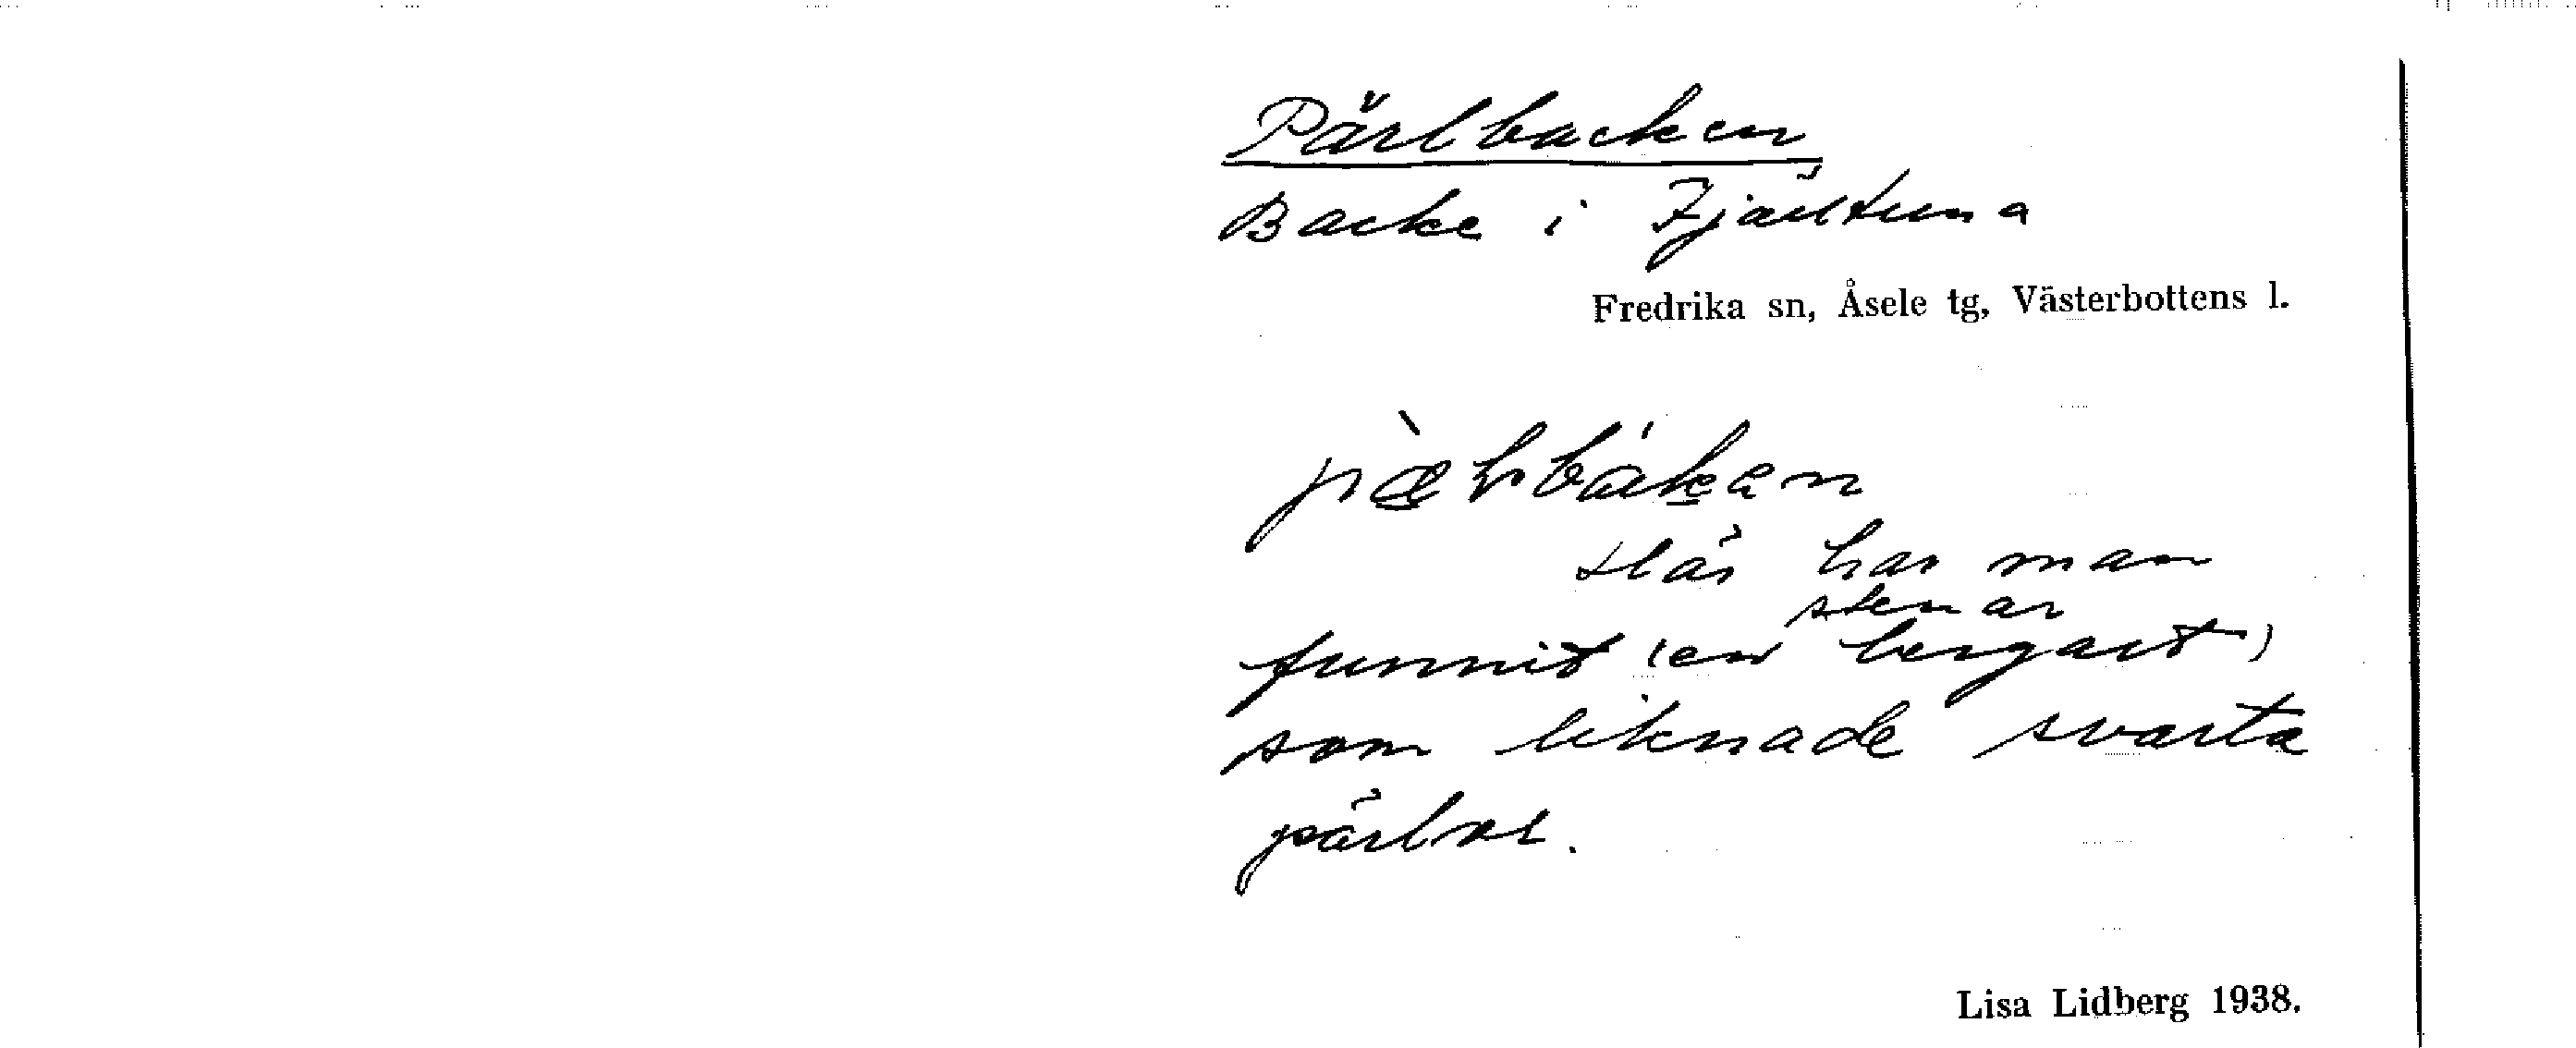 Pärlbacken
Backe i Fjälltuna
Fredrika sn, Åsele tg, Västerbottens l.
Här har man
stenar
funnit (en bergart)
som liknade svarta
pärlor.
Lisa Lidberg 1938.